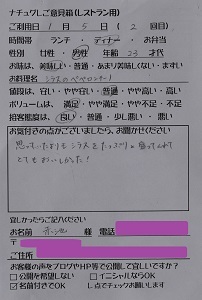 ナチュグレご意見箱(レストラン用)
ご利用日 1月 5日 (2 回目)
時間帯 ランチ・ディナー
性別 女性・男性 年齢 23才代
お味は 美味しい・普通・あまり美味しくない・まずい
お料理名 シラスのペペロンチーノ
値段は 安い・やや安い・普通・やや高い・高い
ボリュームは 満足・やや満足・やや不足・不足
接客態度は 良い・普通・少し悪い・悪い
お気付きの点がございましたら、お聞かせください
思っていたよりもシラスをたっぷり盛ってくれて
とてもおいしかった!
宜しかったらご記入ください
お名前 様 電話
〒
ご住所
お客様の声をブログやHP等で公開して宜しいですか?
□公開を希望しない □イニシャルならOK
☑名前付きでOK レ点でチェックお願いします